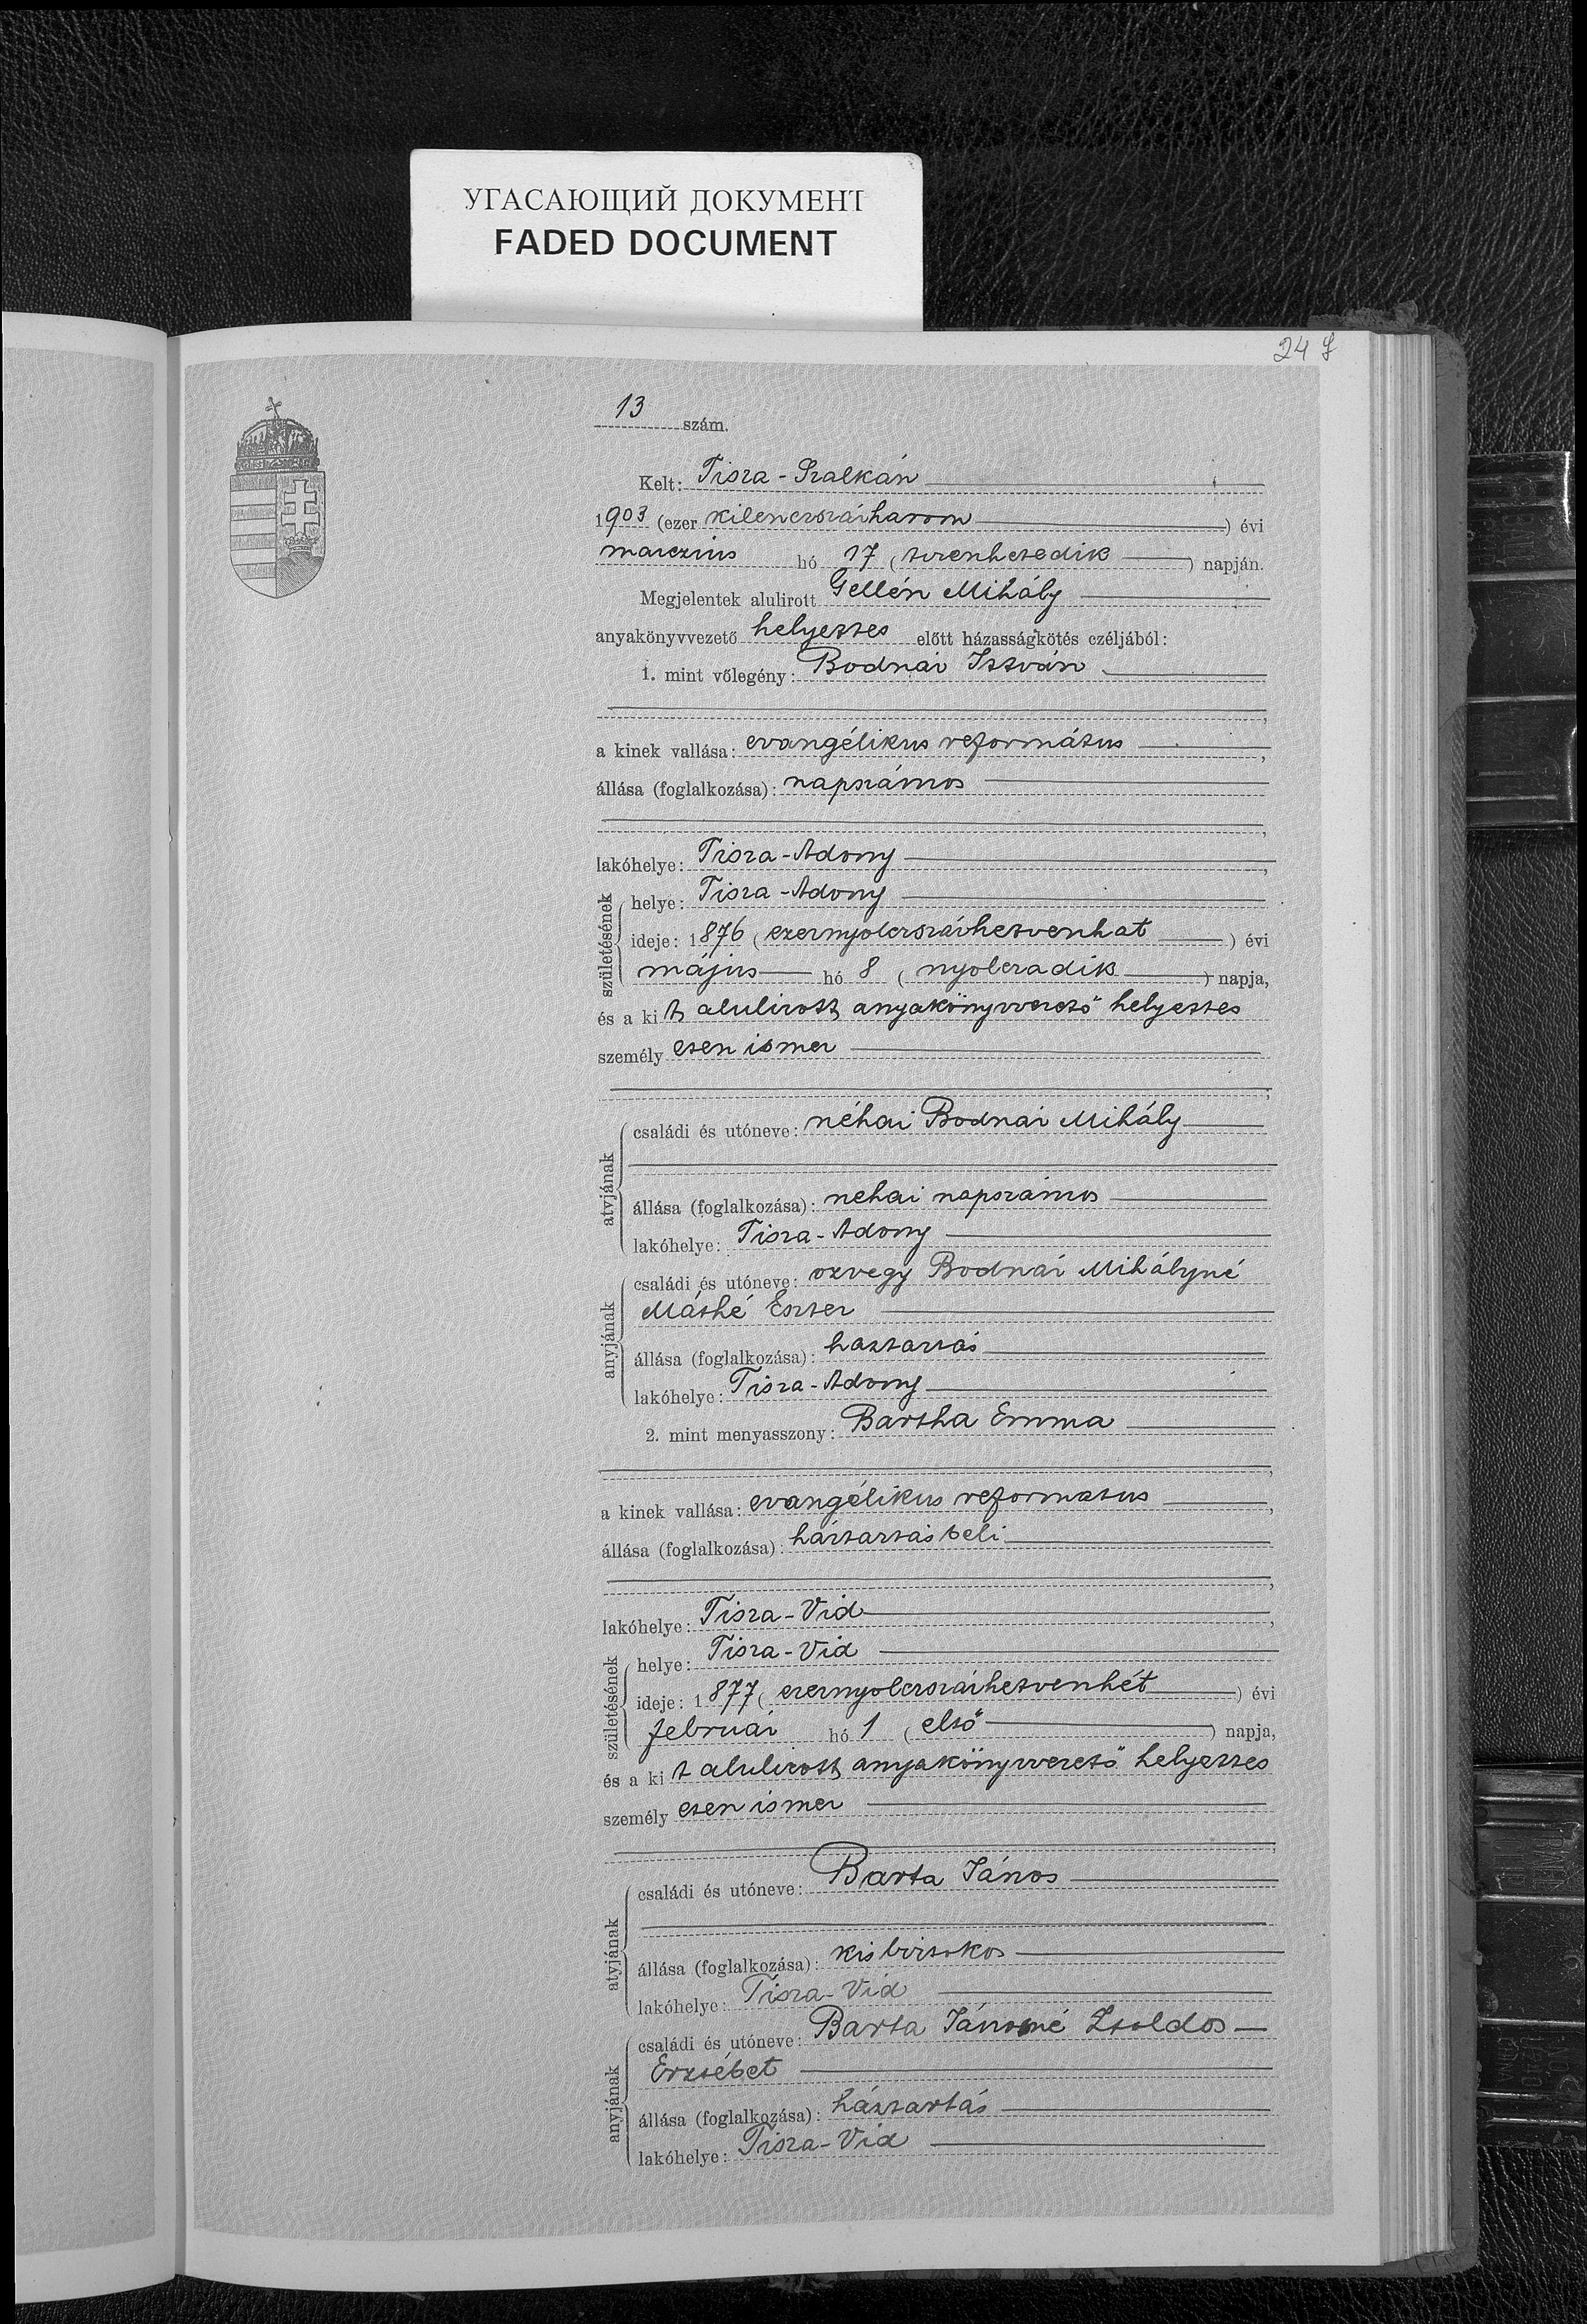 УГАСАЮЩИЙ ДОКУМЕНТ
FADED DOCUMENT
24
13 szám.
Kelt: Tisza-Szalkán
1903 (ezer kilenczszázhárom) évi
márczius hó 17 (tizenhetedik) napján.
Megjelentek alulirott Gellén Mihály
anyakönyvvezető helyettes előtt házasságkötés czéljából:
1. mint vőlegény: Bodnár István
a kinek vallása: evangélikus református
állása (foglalkozása): napszámos
lakóhelye: Tisza-Adony
születésének
helye: Tisza-Adony
ideje: 1876 (ezernyolczszázhetvenhat) évi
május hó 8 (nyolczadik) napja,
és a kit alulirott anyakönyvvezető helyettes
személyesen ismer
atyjának
családi és utóneve: néhai Bodnár Mihály
állása (foglalkozása): nehai napszámos
lakóhelye: Tisza-Adony
anyjának
családi és utóneve: özvegy Bodnár Mihályné
Máthé Eszter
állása (foglalkozása): háztartás
lakóhelye: Tisza-Adony
2. mint menyasszony: Bartha Emma
a kinek vallása: evangélikus reformatus
állása (foglalkozása): háztartásbeli
lakóhelye: Tisza-Vid
születésének
helye: Tisza-Vid
ideje: 1877 (ezernyolczszázhetvenhét) évi
február hó 1 (első) napja,
és a kit alulirott anyakönyvvezető helyettes
személyesen ismer
atyjának
családi és utóneve: Barta János
állása (foglalkozása): kisbirtokos
lakóhelye: Tisza-Vid
anyjának
családi és utóneve: Barta Jánosné Zsoldos
Erzsébet
állása (foglalkozása): háztartás
lakóhelye: Tisza-Vid